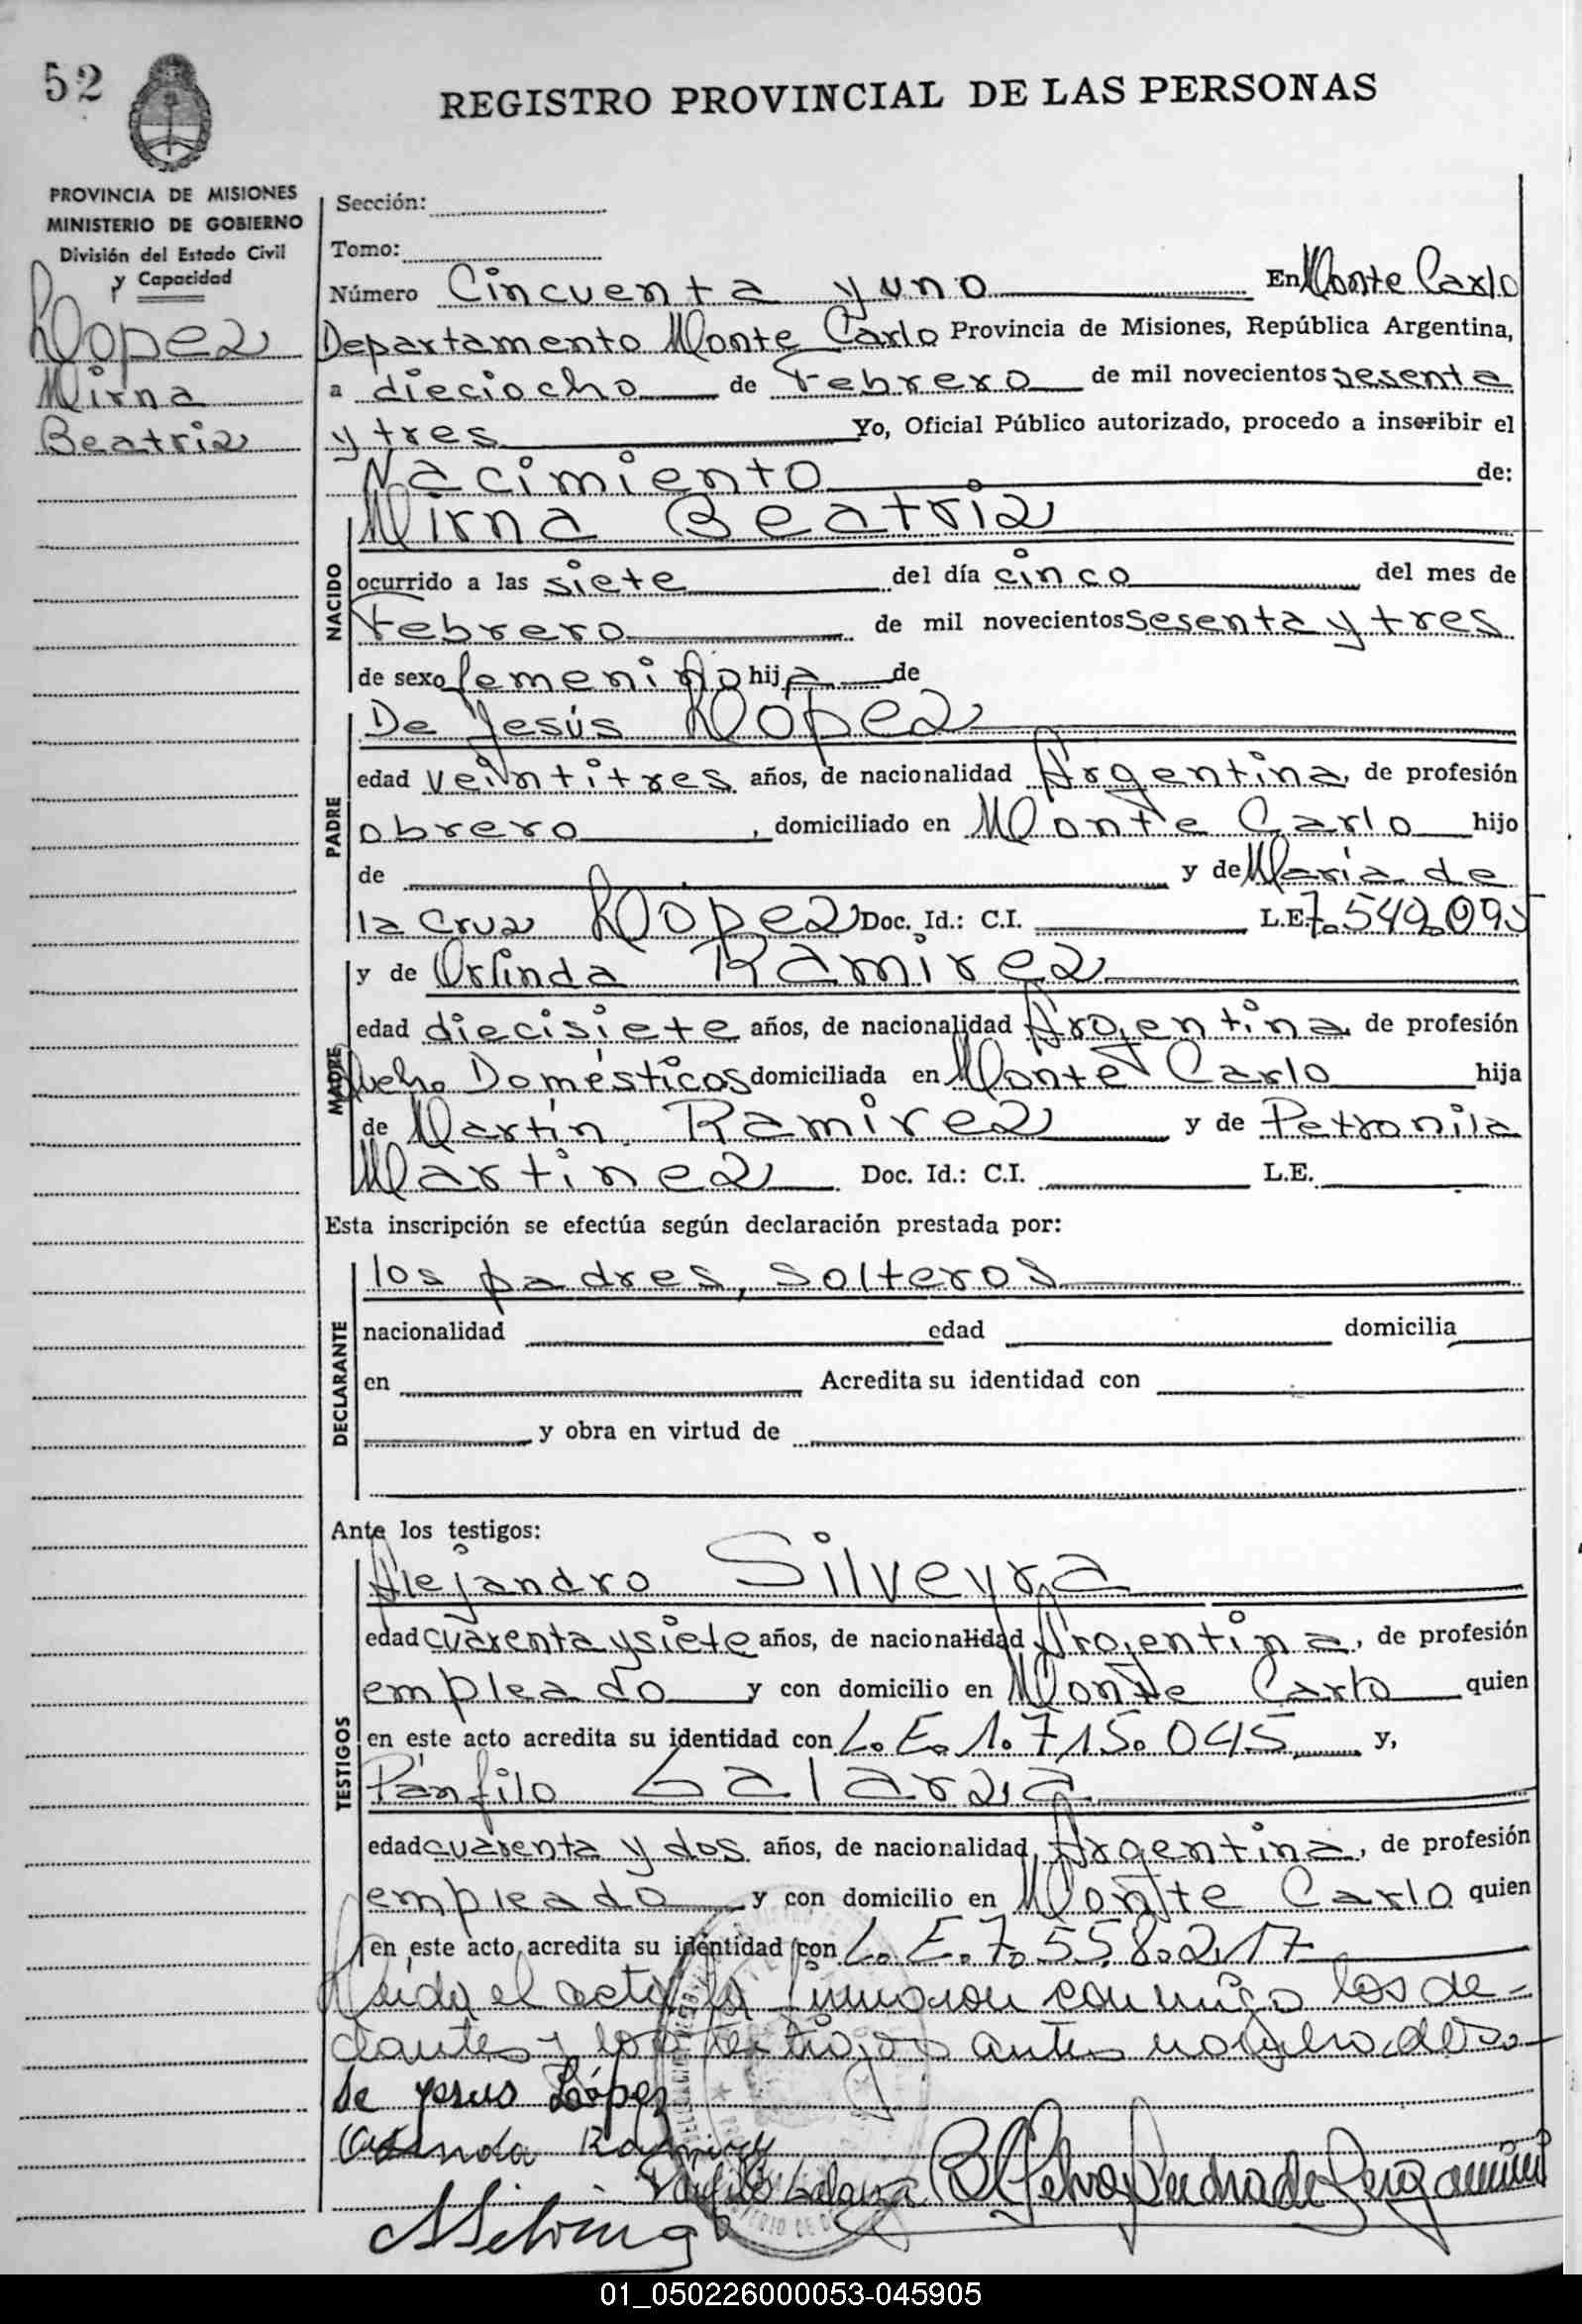 52
REGISTRO PROVINCIAL DE LAS PERSONAS
PROVINCIA DE MISIONES
MINISTERIO DE GOBIERNO
División del Estado Civil
y Capacidad
López
Mirna
Beatriz
Sección:
Tomo:
Número Cincuenta y uno En Monte Carlo
Departamento Monte Carlo Provincia de Misiones, República Argentina,
a dieciocho de Febrero de mil novecientos sesenta
y tres Yo, Oficial Público autorizado, procedo a inscribir el
Nacimiento de:
NACIDO
Mirna Beatriz
ocurrido a las siete del día cinco del mes de
Febrero de mil novecientos sesenta y tres
de sexo femenino hija de
PADRE
De Jesús López
edad veintitres años, de nacionalidad Argentina, de profesión
obrero, domiciliado en Monte Carlo hijo
de y de María de
la Cruz López Doc. Id.: C.I. L.E. 7.549.095
MADRE
y de Orlinda Ramirez
edad diecisiete años, de nacionalidad Argentina de profesión
Domésticos domiciliada en Monte Carlo hija
de Martín Ramirez y de Petronila
Martinez Doc. Id.: C.I. L.E.
Esta inscripción se efectúa según declaración prestada por:
DECLARANTE
los padres, solteros
nacionalidad edad domicilia
en Acredita su identidad con
y obra en virtud de
Ante los testigos:
TESTIGOS
Alejandro Silveyra
edad cuarenta y siete años, de nacionalidad Argentina, de profesión
empleado y con domicilio en Monte Carlo quien
en este acto acredita su identidad con L.E. 1.715.045 y,
Pánfilo Galarza
edad cuarenta y dos años, de nacionalidad Argentina, de profesión
empleado y con domicilio en Monte Carlo quien
en este acto acredita su identidad con L.E. 7.558.217
Leida el acta la firmaron conmigo los de-
clantes y los testigos antes
de Jesus López
Ramirez
Panfilo Galarza
01_050226000053-045905